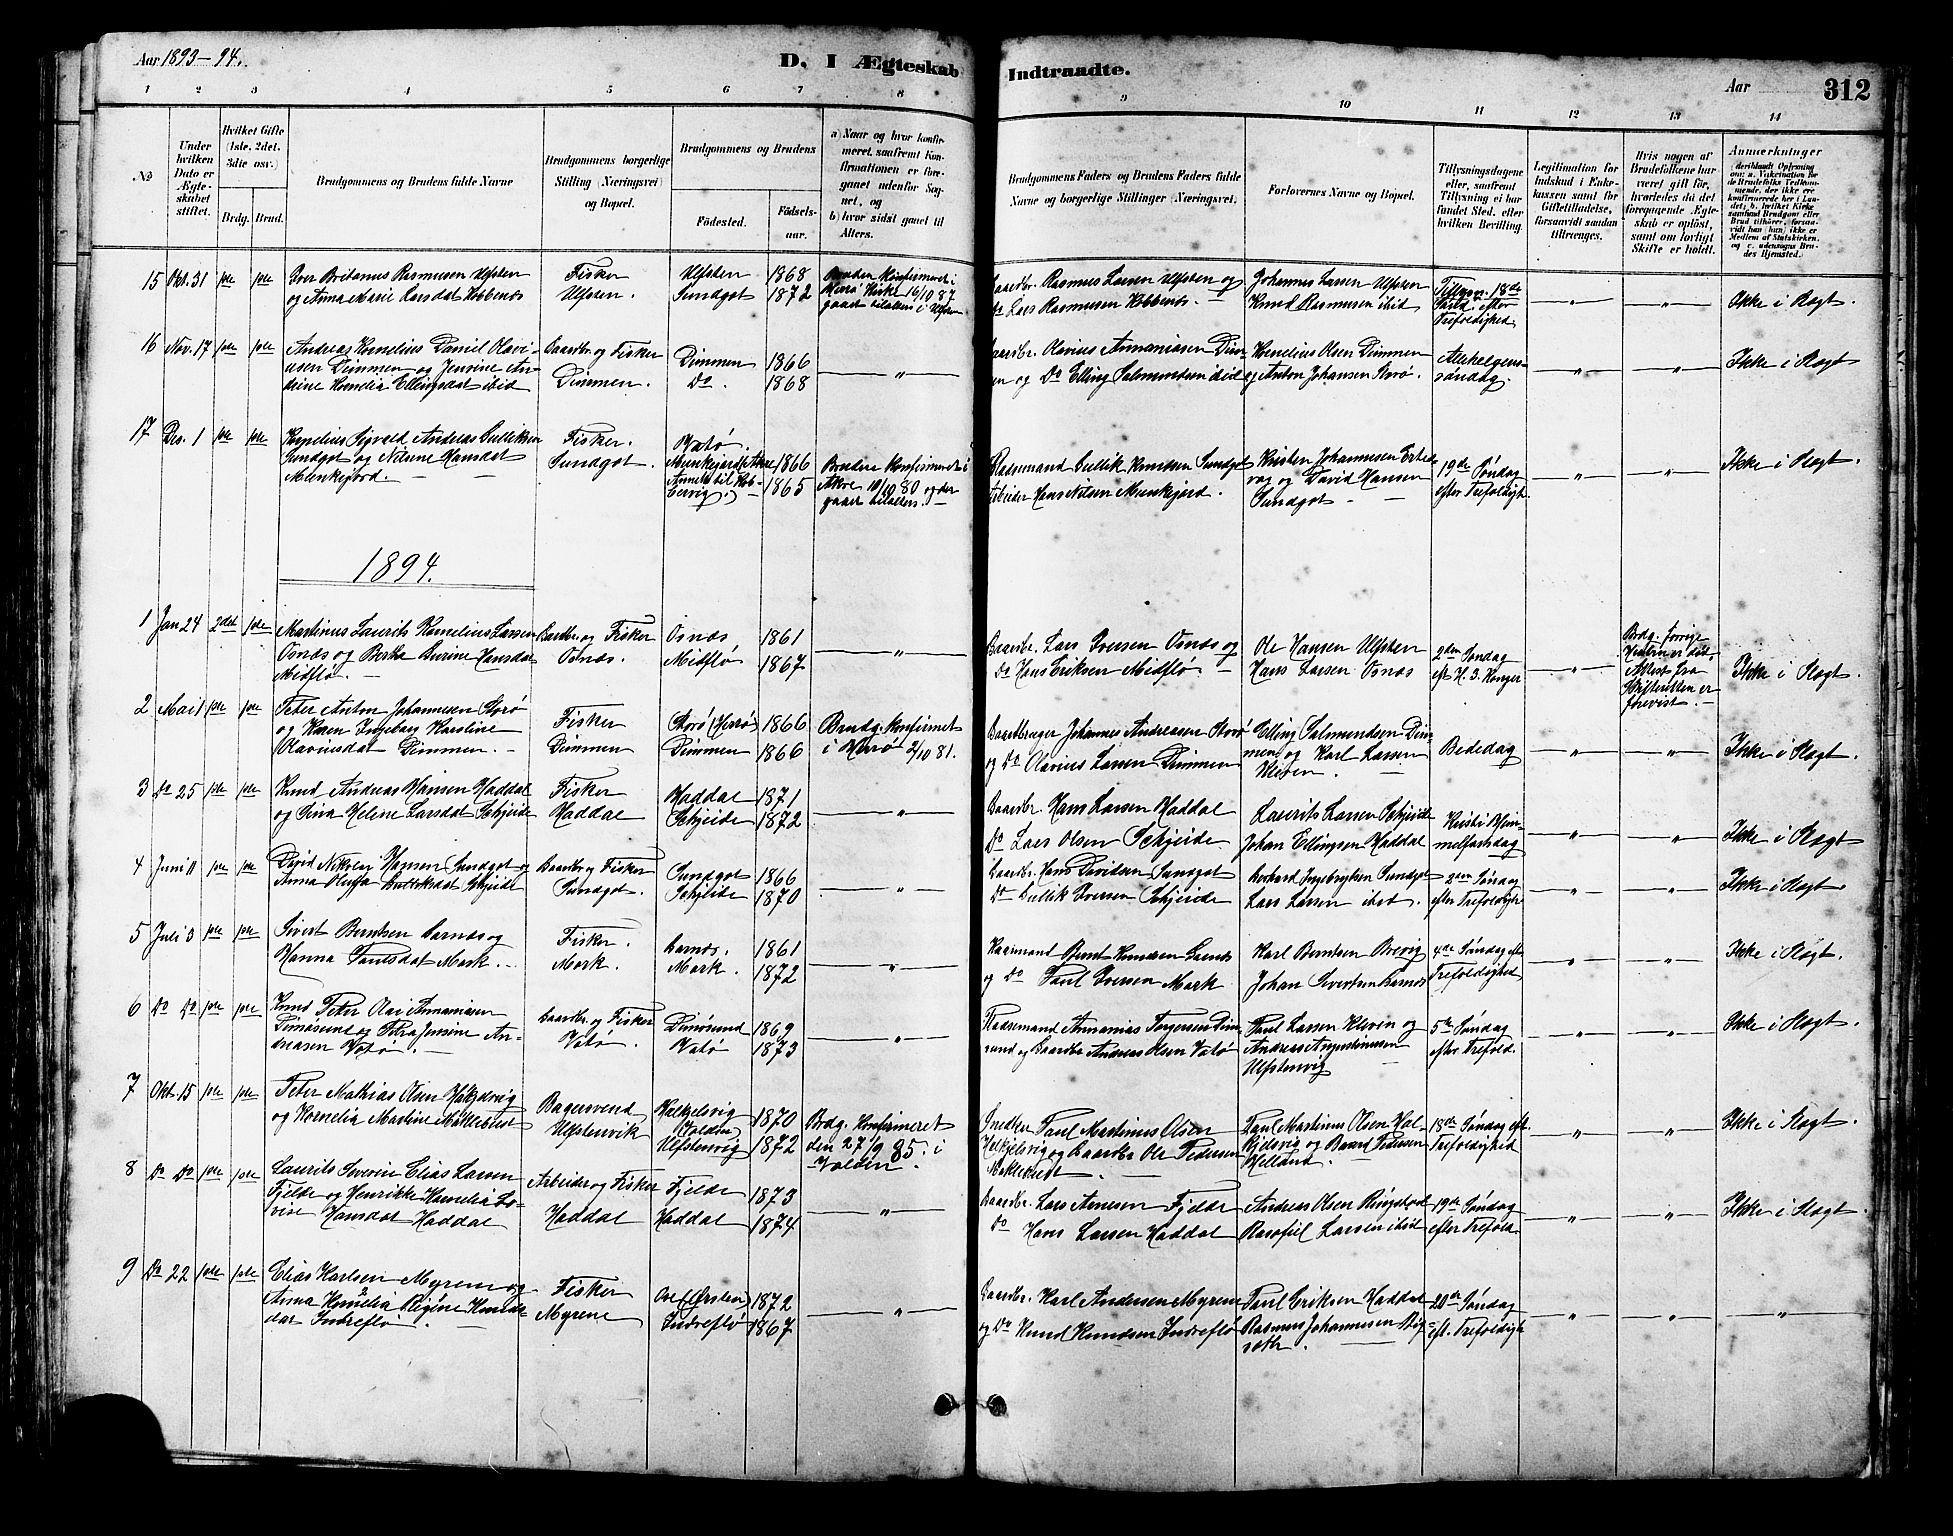 Aar 1893-94.
D. I Ægteskab Indtraadte.
Aar 312
1 2 3 4 5 6 7 8 9 10 11 12 13 14
No
Under hvilken Dato er Ægteskabet stiftet.
Hvilket Gifte (1ste, 2det, 3die osv.)
Brdg. Brud.
Brudgommens og Brudens fulde Navne
Brudgommens borgerlige Stilling (Næringsvei) og Bopæl.
Brudgommens og Brudens
Fødested.
Fødselsaar.
a) Naar og hvor konfirmeret, saafremt Konfirmationen er foregaaet udenfor Sognet, og b) hvor sidst gaaet til Alters.
Brudgommens Faders og Brudens Faders fulde Navne og borgerlige Stillinger (Næringsvei).
Forlovernes Navne og Bopæl.
Tillysningsdagene eller, saafremt Tillysning ei har fundet Sted, efter hvilken Bevilling.
Legitimation for Indskud i Enkekassen samt for Giftetilladelse, forsaavidt saadan tiltrænges.
Hvis nogen af Brudefolkene har været gift før, hvorledes da det foregaaende Ægteskab er opløst, samt om lovligt Skifte er holdt.
Anmærkninger
15 Okt. 31 1ste 1ste
Iver Britanus Rasmusen Ulfsten
og Anna Marie Larsdat Kobbenes
Fisker
Ulfsten.
Ulfsten 1868
Sundgot 1872
Bruden Konfirmeret i
Herø Kirke 16/10 87
gaaet tilalters i Ulfsten
Gaardbr. Rasmus Larsen Ulfsten og
Do Lars Rasmusen Kobbenes.
Johannes Larsen Ulfsten
Knud Rasmusen ibid
18de
efter
Trefoldighed.
Ikke i Slægt.
16 Nov. 17 1ste 1ste
Andreas Kornelius Daniel Olavi-
usen Dimmen og Jensine An-
drine Kornelia Ellingsdat ibid
Gaardbr. og Fisker
Dimmen.
Dimmen 1866
Do. 1868
Gaardbr. Olavius Annaniasen Dim-
en og Do Elling Salmundsen ibid
Kornelius Olsen Dimmen
og Anton Johansen Storø.
Allehelgens-
søndag.
Ikke i Slægt
17 Des. 1 1ste 1ste
Kornelius Sigvald Andreas Gulliksen
Sundgot og Nilsine Hansdat
Munkejord.
Fisker.
Sundgot.
Vatø.
1866
1865
Bruden Konfirmeret i
10/10 80 og der
gaaet tilalters.
Pladsemand Gullik Knudsen Sundgot
Arbeider Hans Nilsen Munkejord.
Kristen Johannesen
og David Hansen
Sundgot
19de Søndag
efter Trefoldigh.
Ikke i Slægt.
1894.
1 Jan 24 2det 1ste
Martinus Laurits Kornelius Larsen
Osnes og Berthe Gurine Hansdat
Midflø.
Gardbr. og Fisker
Osnes.
Osnæs 1861
Midflø 1867
Gaardbr. Lars Iversen Osnæs og
Do Hans Eriksen Midflø
Ole Hansen Ulfsten
Hans Larsen Osnæs
2den Søndag
eft. H. 3. Konger
Brdg. forrige
Hustru er død.
Attest fra
Skifteretten er
forevist.
Ikke i Slægt.
2 Mai 1 1ste 1ste
Peter Anton Johannesen Storø
og Karen Ingeborg Karoline
Olaviusdat Dimmen.
Fisker
Dimmen
Storø (Herø) 1866
Dimmen 1866
Brudg. Konfirmeret
i Herø 2/10 81.
Gaardbruger Johannes Andreasen Storø
og Do Olavius Larsen Dimmen
Elling Salmundsen Dim-
men og Karl Larsen
Kleven.
Bededag
Ikke i Slægt.
3 Do 25 1ste 1ste
Knud Andreas Hansen Haddal
og Sina Helene Larsdat Schjeide
Fisker
Haddal
Haddal 1871
Schjeide 1872
Gaardbr. Hans Larsen Haddal
Do Lars Olsen Schjeide
Laurits Larsen Schjeide
Johan Ellingsen Haddal
Kristi Him-
melfartsdag
Ikke i Slægt
4 Juni 11 1ste 1ste
David Nikolai Hansen Sundgot og
Anna Olufa Gulliksdat Schjeide
Gaardbr. og Fisker
Sundgot.
Sundgot 1866
Schjeide 1870
Gaardbr. Hans Davidsen Sundgot
Do Gullik Iversen Schjeide
Gerhard Ingebrigtsen Sundgot
Lars Larsen ibid.
2den Søndag
efter Trefoldigh
Ikke i Slægt.
5 Juli 3 1ste 1ste
Sivert Berntsen Garnæs og
Hanna Paulsdat Mork.
Fisker.
Mork.
Garnæs. 1861
Mork. 1872
Kaarmand Bernt Knudsen Garnes
og Do Paul Iversen Mork
Karl Berntsen Brevig
Johan Sivertsen Garnes
4de Søndag eft
Trefoldighed
Ikke i Slægt.
6 Do Do 1ste 1ste
Knud Peter Olai Annaniasen
Dimøsund og Petra Jensine An-
dreasen Vatø.
Gaardbr. og Fisker
Vatø.
Dimøsund 1869
Vatø 1873
Pladsemand Annanias Torgersen Dim-
sund og Gaardbr Andreas Olsen Vatø
Paul Larsen Kleven og
Andreas Augustinusen
Ulfstenvig
5te Søndag
efter Trefold.
Ikke i Slægt.
7 Okt. 15 1ste 1ste
Peter Mathias Olsen Halkjelsvig
og Kornelia Martine Møklebust
Bagersvend
Ulfstenvik
Halkjelsvig
(Volden) 1870
Ulfstenvig 1872
Brdg. Konfirmeret
den 27/9 85. i
Volden.
Snedker Paul Martinus Olsen
Halkjelsvig og Gaardbr Ole Pedersen
Møklebust
Paul Martinus Olsen Hal-
kjelsvig og Baard Pedersen
Helland.
18de Søndag eft.
Trefoldighed
Ikke i Slægt.
8 Do Do 1ste 1ste
Laurits Severin Elias Larsen
Fjelde og Henrikke Kornelia Lo-
vise Hansdat Haddal
Arbeider og Fisker
Haddal
Fjelde 1873
Haddal 1874
Gaardbr. Lars Arnesen Fjelde
Do Hans Larsen Haddal
Andreas Olsen Ringstad
Rasofiel Larsen ibid
19de Søndag
efter Trefold.
Ikke i Slægt.
9 Do 22 1ste 1ste
Elias Karlsen Myrene og
Anna Kornelia Regine Knuds-
dat Indreflø.
Fisker
Myrene
Ose (Ørsten) 1872
Indreflø 1867
Gaardbr. Karl Andersen Myrene
og Do Knud Knudsen Indreflø
Paul Eriksen Haddal
Rasmus Johannesen Røg-
sæth.
20de Søndag
eft. Trefoldigh